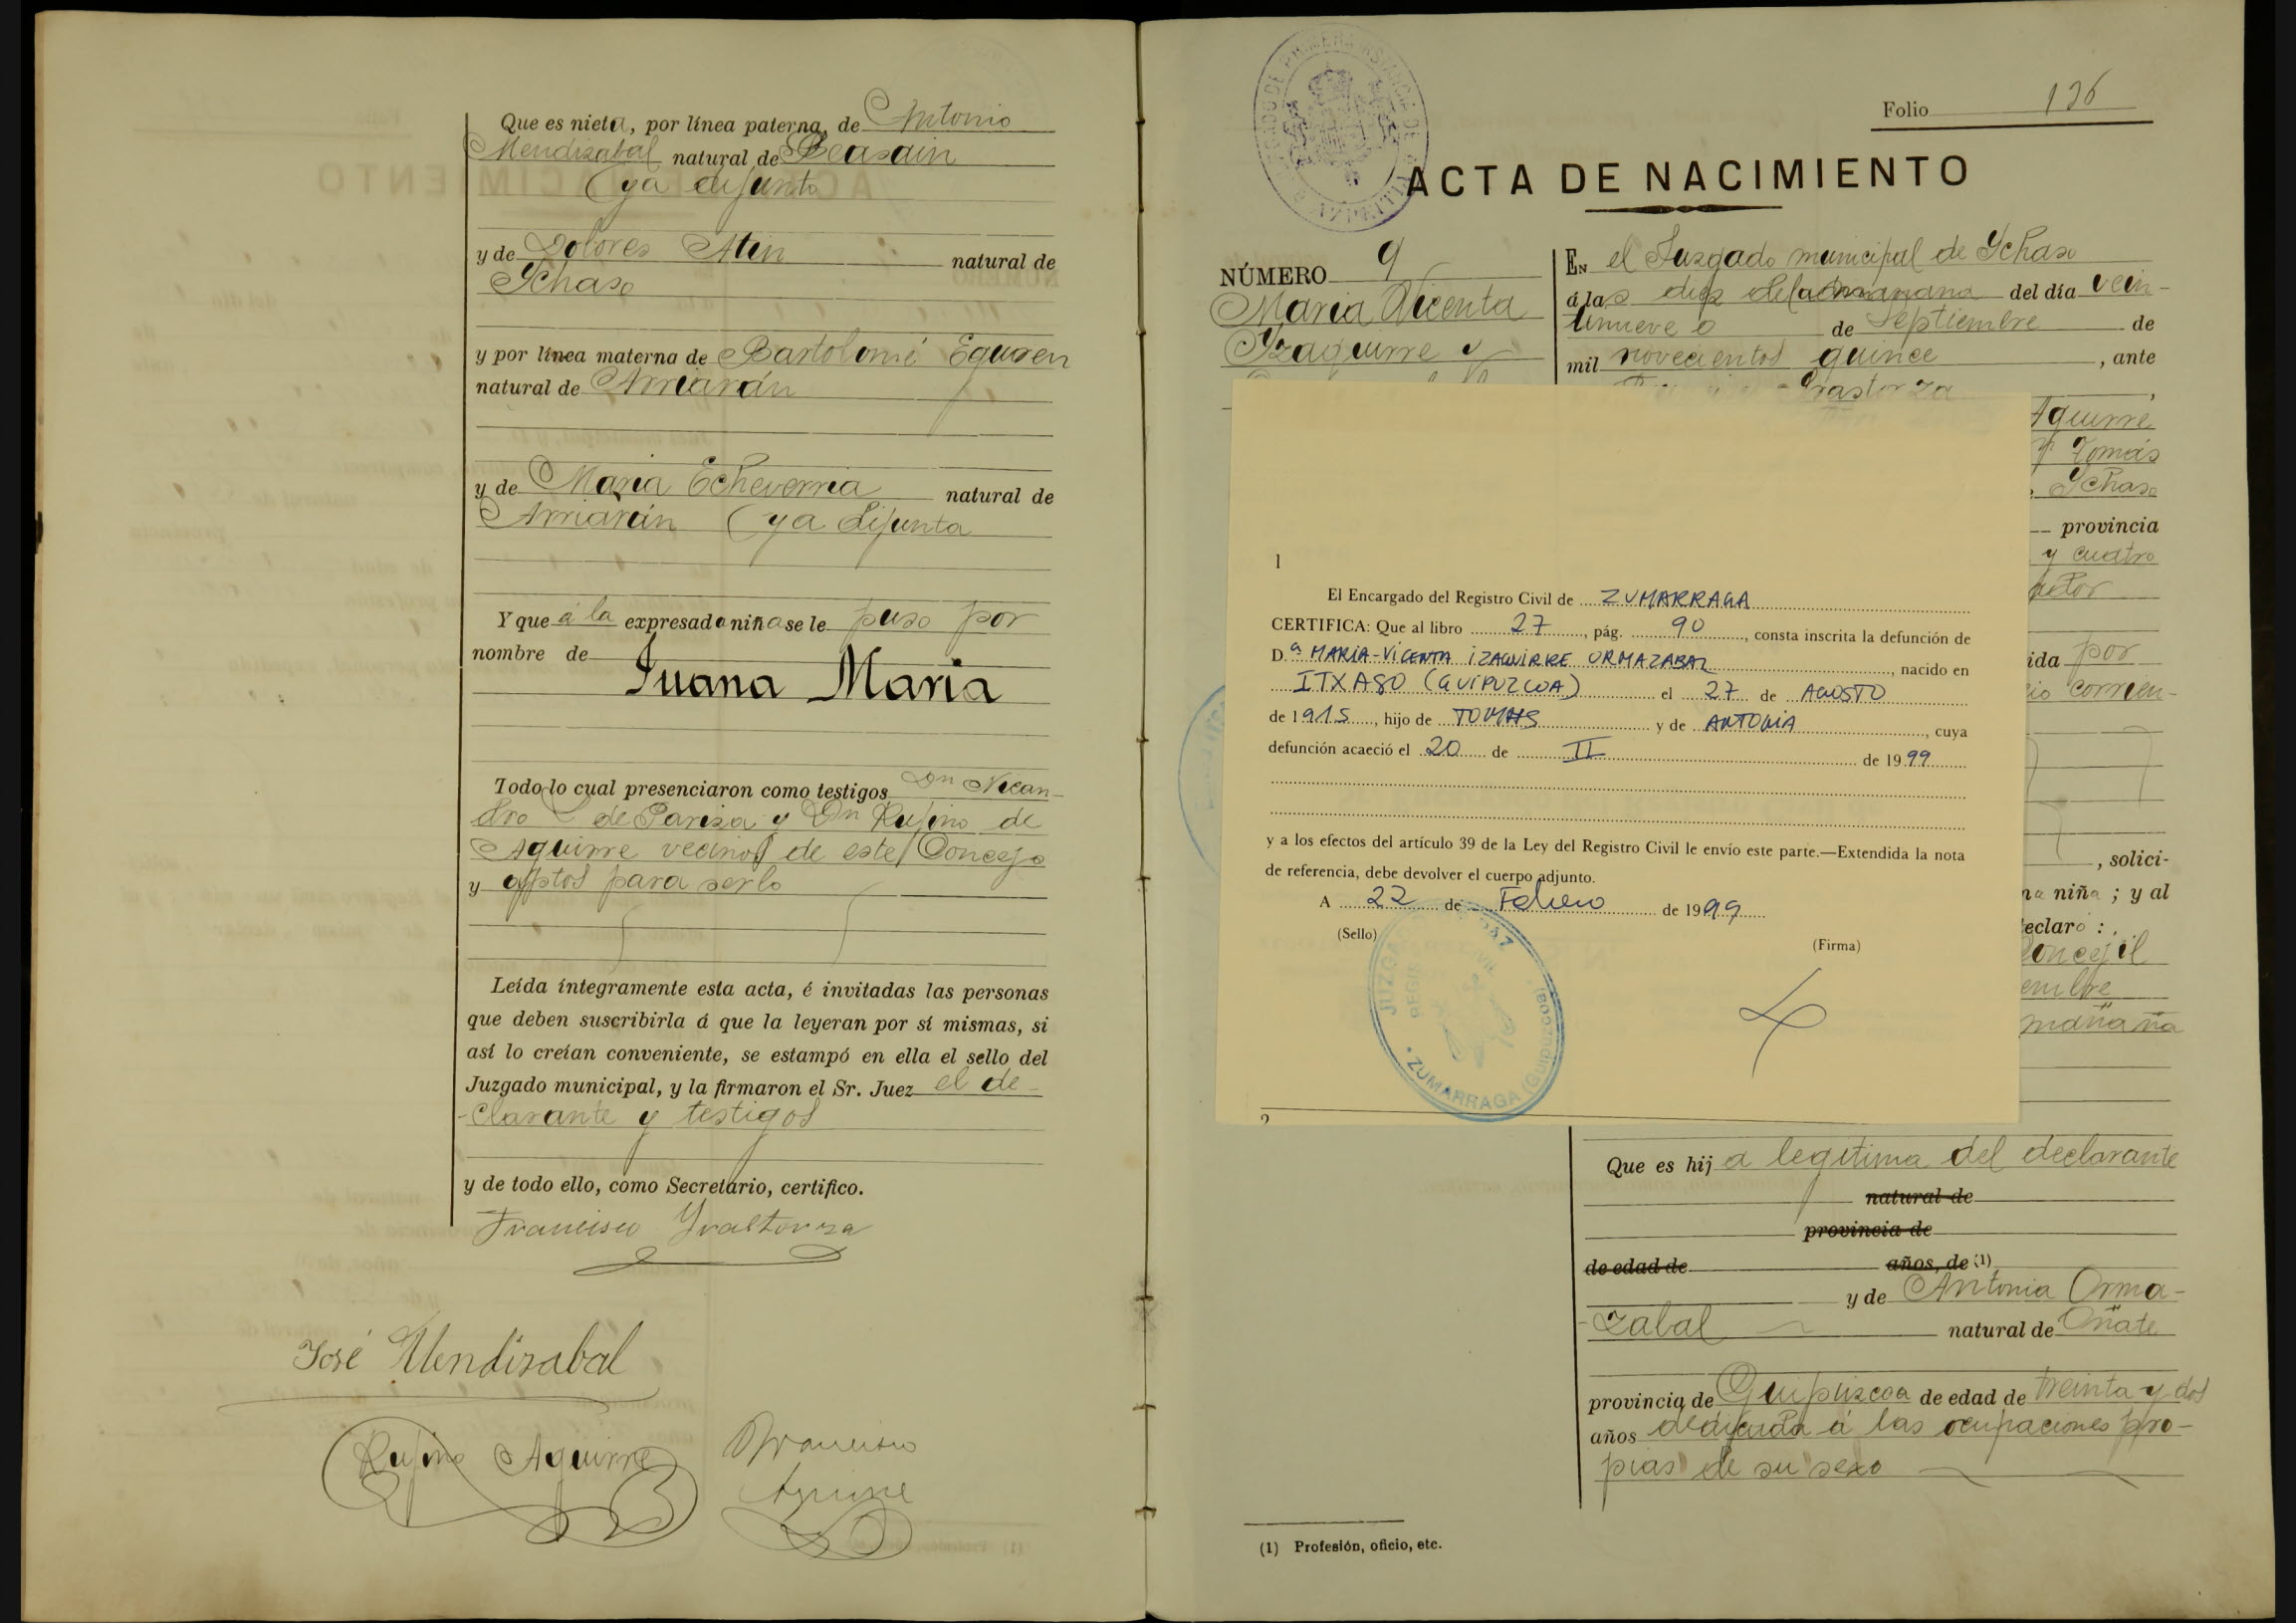 Que es nieta, por línea paterna, de Antonio
Mendizabal natural de Beasain
(ya difunto
y de Dolores Atin natural de
Ychaso
y por línea materna de Bartolomé Eguren
natural de Arriarán
y de Maria Echeverria natural de
Arriarán (ya difunta
Y que á la expresada niña se le puso por
nombre de
Juana Maria
Todo lo cual presenciaron como testigos Dn Nican-
dro de Pariza y Dn Rufino de
Aguirre vecinos de este Concejo
y aptos para serlo
Leída íntegramente esta acta, é invitadas las personas
que deben suscribirla á que la leyeran por sí mismas, si
así lo creían conveniente, se estampó en ella el sello del
Juzgado municipal, y la firmaron el Sr. Juez el de-
-clarante y testigos
y de todo ello, como Secretario, certifico.
Francisco Yrastorza
José Mendizabal
Rufino Aguirre
Francisco
Aguirre
Folio 136
ACTA DE NACIMIENTO
NÚMERO 9
Maria Vicenta
Yzaguirre y
EN el Juzgado municipal de Ychaso
á las diez de la mañana del día vein-
tinueve de Septiembre de
mil novecientos quince, ante
Yrastorza
Aguirre
y Tomás
Ychaso
provincia
y cuatro
por
corrien-
, solici-
niña; y al
declaró:
Concejil
mañana
1
El Encargado del Registro Civil de ZUMARRAGA
CERTIFICA: Que al libro 27, pág. 90, consta inscrita la defunción de
D.ª MARIA-VICENTA IZAGUIRRE ORMAZABAL, nacido en
ITXASO (GUIPUZCOA) el 27 de AGOSTO
de 1915, hijo de TOMAS y de ANTONIA, cuya
defunción acaeció el 20 de II de 1999
y a los efectos del artículo 39 de la Ley del Registro Civil le envío este parte.—Extendida la nota
de referencia, debe devolver el cuerpo adjunto.
A 22 de Febrero de 1999
(Sello)
(Firma)
JUZGA
ZUMARRAGA (Guipuzcoa)
2
Que es hija legítima del declarante
natural de
provincia de
de edad de años, de (1)
y de Antonia Orma-
-zabal natural de Oñate
provincia de Guipúzcoa de edad de treinta y dos
años dedicada á las ocupaciones pro-
pias de su sexo
(1) Profesión, oficio, etc.